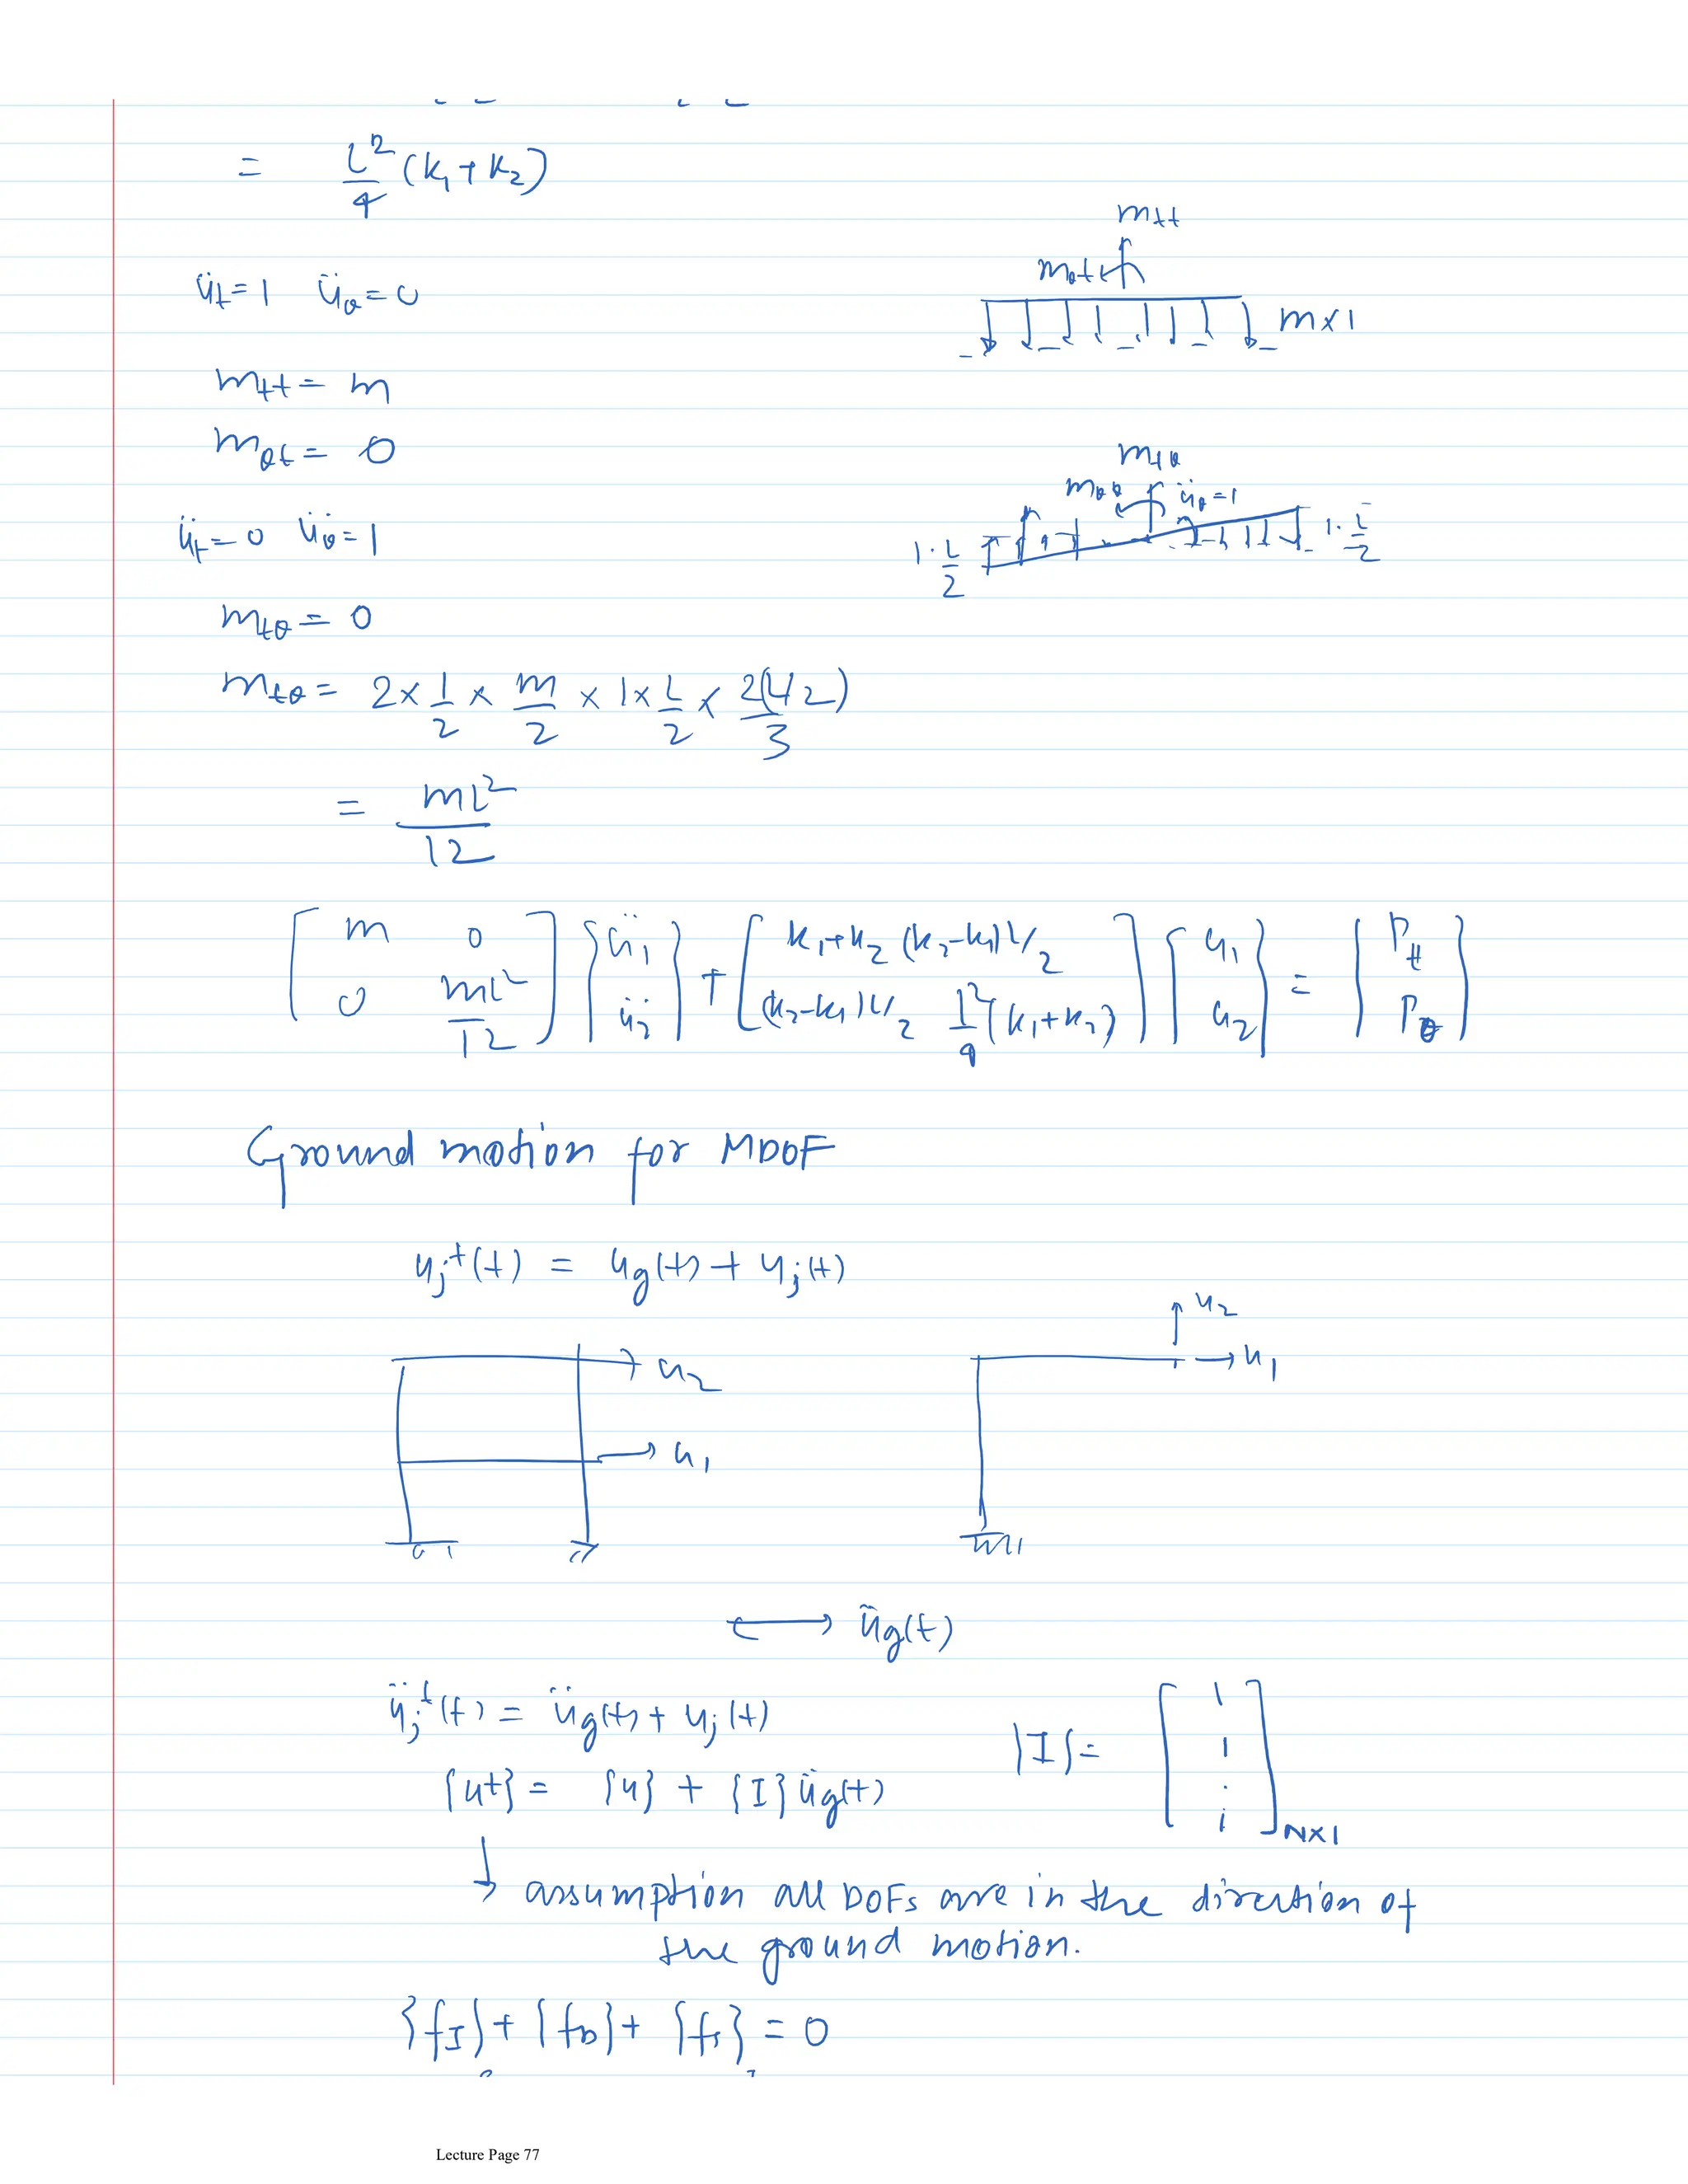 = L²/4 (k₁ + k₂)
m_tt
m_θt
ü_t = 1   ü_θ = 0
m×1
m_tt = m
m_θt = 0
m_tθ
m_θθ   ü_θ = 1
ü_t = 0   ü_θ = 1
1·L/2   1·L/2
m_tθ = 0
m_tθ = 2 × 1/2 × m/2 × 1 × L/2 × 2(L/2)/3
= mL²/12
[m 0; 0 mL²/12] {ü₁; ü₂} + [k₁+k₂ (k₂-k₁)L/2; (k₂-k₁)L/2 L²/4(k₁+k₂)] {u₁; u₂} = {P_t; P_θ}
Ground motion for MDOF
u_j^t(t) = u_g(t) + u_j(t)
u₂
u₂   u₁
u₁
ü_g(t)
ü_j^t(t) = ü_g(t) + u_j(t)
{I} = [1; 1; .; 1] N×1
{ut} = {u} + {I} ü_g(t)
assumption all DOFs are in the direction of
the ground motion.
{f_I} + {f_D} + {f_s} = 0
Lecture Page 77